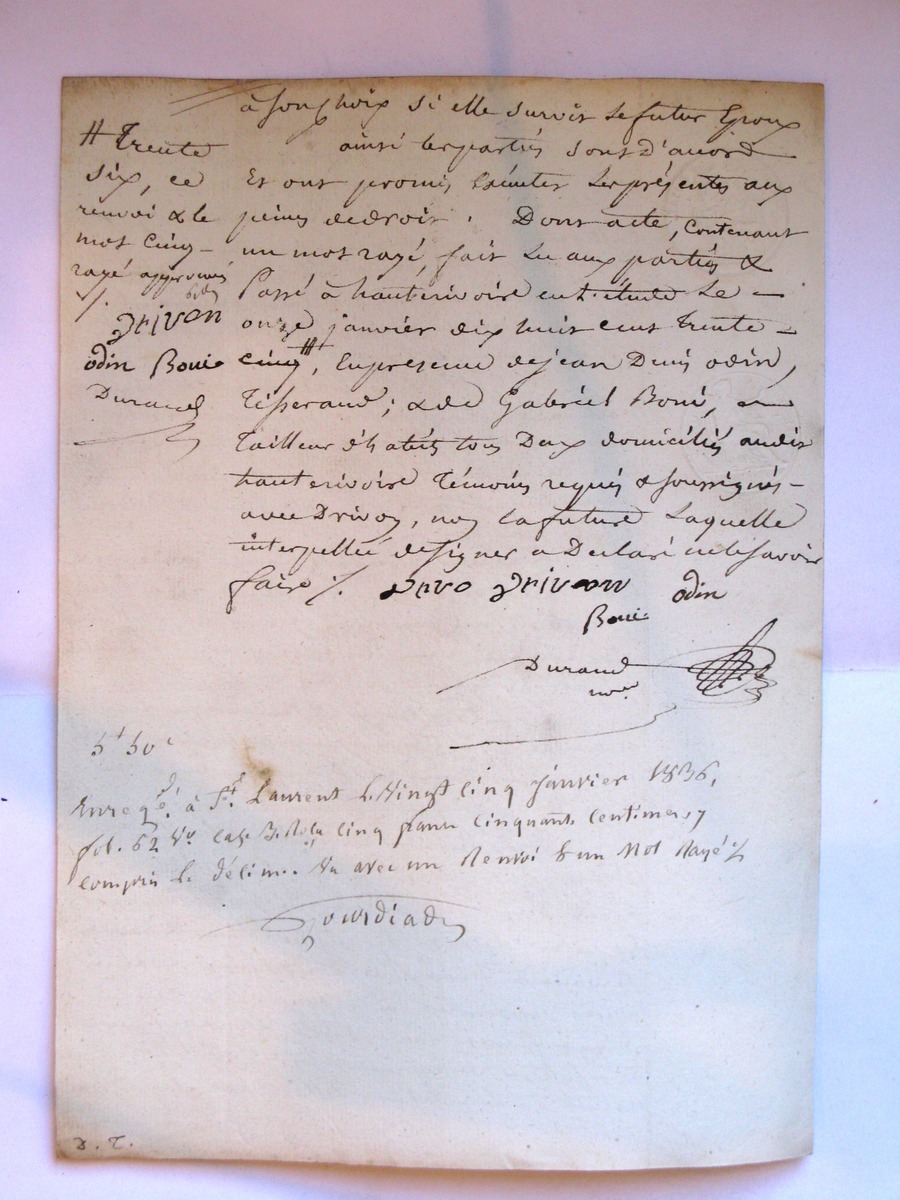 à son choix si elle survit le futur Epoux
ainsi les parties sont d'accord
Et ont promis Exécuter les présentes aux
peines de droit. Dont acte, contenant
un mot rayé, fait lu aux parties &
Passé à hauterivoire en l'étude Le
onze janvier dix huit cent trente
cinq #, En présence de jean Denis odin,
Tisserand; & de Gabriel Boui,
Tailleur d'habits tous Deux domiciliés audit
hauterivoire Témoins requis & soussignés
avec Drivon, non la future Laquelle
interpellée de signer a Déclaré ne le savoir
faire %.
Drivon odin
Boui
Durand
nore
# Trente
six, ce
renvoi & le
mot Cinq
rayé approuvés
%.
Drivon
odin Boui
Durand
5f 50c
Enregé. à St. Laurent le Vingt Cinq Janvier 1836,
fol. 62 Vo Case 3. Reçu Cinq francs Cinquante Centimes y
compris le décime. Vu avec un Renvoi & un Mot Rayé %
D. T.